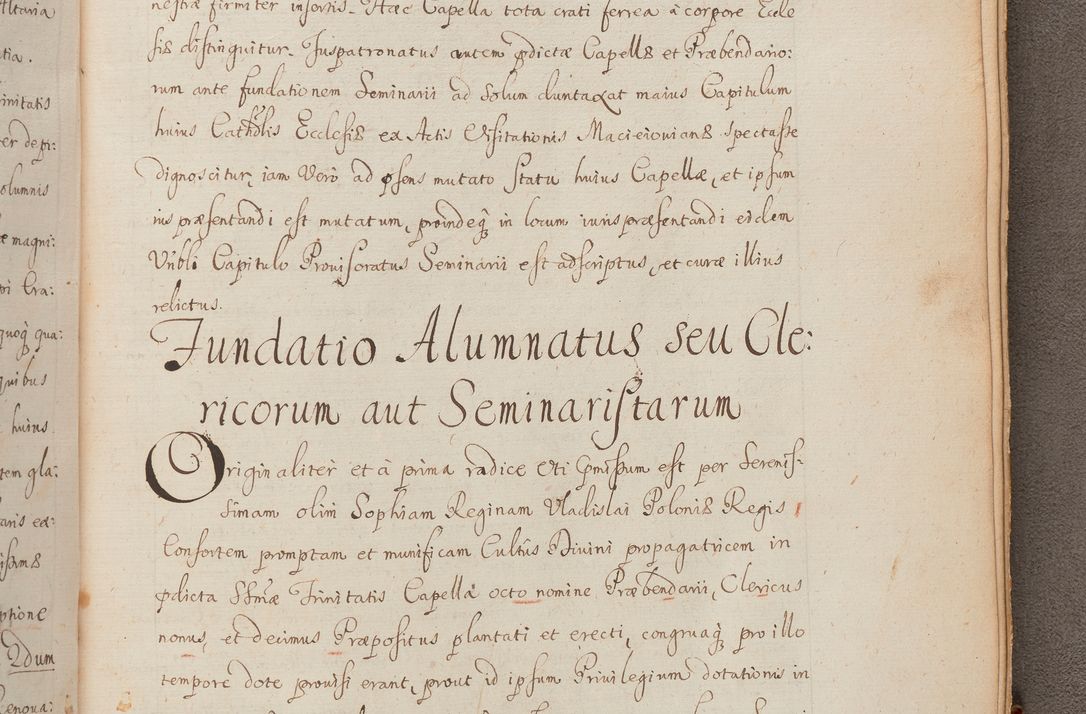 nostræ firmiter insortis. Hæc Capella tota crati ferrea à corpore Eccle
siæ distinguitur. Juspatronatus autem pdictæ Capellæ et Præbendario:
rum ante fundationem Seminarii ad solum duntaxat maius Capitulum
huius Cathōlis Ecclesiæ ex Actis Visitationis Macieiovianæ spectasse
dignoscitur, iam Verò ad psens mutato statu huius Capellæ, et ipsum
ius præsentandi est mutatum, proindeq̃ in locum iuris præsentandi eidem
Vnbli Capitulo Provisoratus Seminarii est adscriptus, et curæ illius
relictus.
Fundatio Alumnatus seu Cle:
ricorum aut Seminaristarum
Originaliter et à prima radice Vti pmissum est per Sereniss-
simam olim Sophiam Reginam Vladislai Poloniæ Regis
Consortem promptam et munificam Cultûs Divini propagatricem in
pdicta SSmæ Trinitatis Capella octo nomine Præbendarii, Clericus
nonus, et decimus Præpositus plantati et erecti, congruaq̃ pro illo
tempore dote provisi erant, prout id ipsum Privilegium dotationis in
ltaria
tia.
rinitatis
er depi:
olumnis
e magni:
pi Cra:
quoq̃ qua:
quibus
huius
tem gla:
aris ex:
ptione
2dum
Renova: